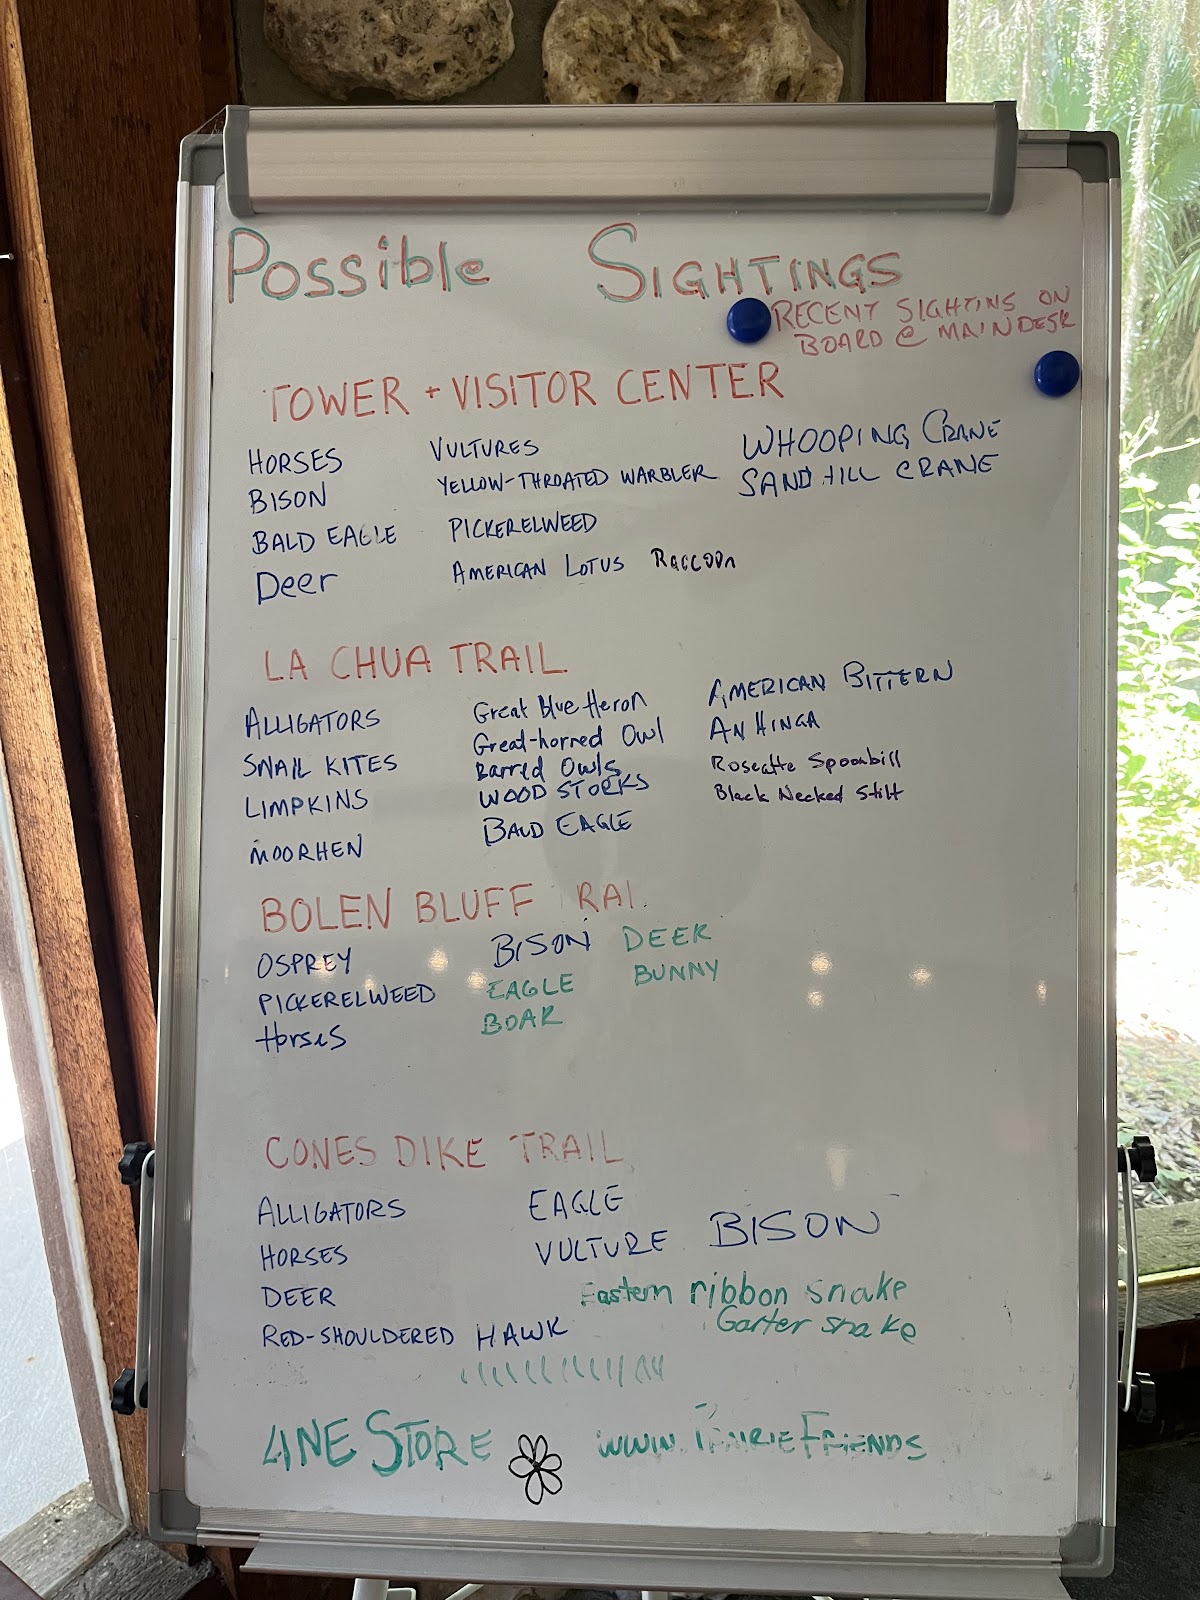 Possible SIGHTINGS
RECENT SIGHTINS ON
BOARD @ MAIN DESK
TOWER + VISITOR CENTER
HORSES VULTURES WHOOPING CRANE
BISON YELLOW-THROATED WARBLER SANDHILL CRANE
BALD EAGLE PICKERELWEED
Deer AMERICAN LOTUS Raccoon
LA CHUA TRAIL
ALLIGATORS Great Blue Heron AMERICAN BITTERN
SNAIL KITES Great-horned Owl ANHINGA
Barred Owls Roseatte Spoonbill
LIMPKINS WOOD STORKS Black Necked Stilt
MOORHEN BALD EAGLE
BOLEN BLUFF RAI
OSPREY BISON DEER
PICKERELWEED EAGLE BUNNY
Horses BOAR
CONES DIKE TRAIL
ALLIGATORS EAGLE
HORSES VULTURE BISON
DEER Eastern ribbon snake
RED-SHOULDERED HAWK Garter snake
STORE FRIENDS